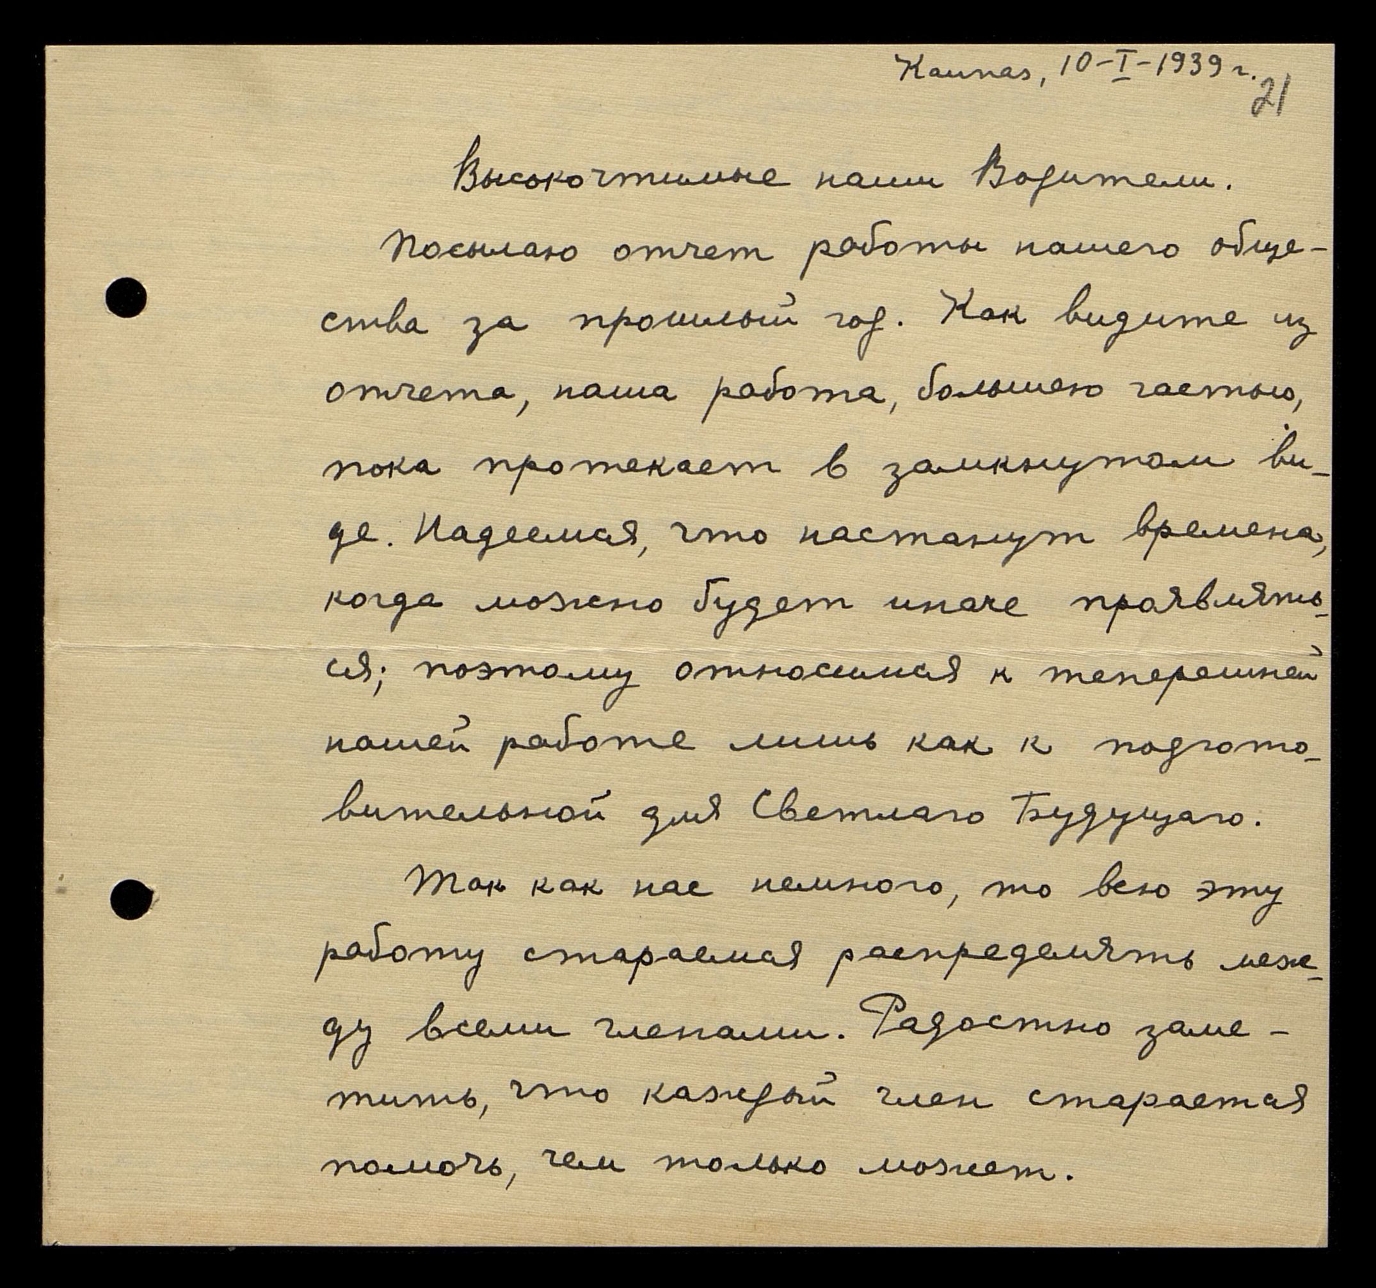 Kaunas, 10-I-1939 г.
21
Высокочтимые наши Водители.
Посылаю отчет работы нашего обще-
ства за прошлый год. Как видите из
отчета, наша работа, большею частью,
пока протекает в замкнутом ви-
де. Надеемся, что настанут времена,
когда можно будет иначе проявлять-
ся; поэтому относимся к теперешней
нашей работе лишь как к подгото-
вительной для Светлаго Будущаго.
Так как нас немного, то всю эту
работу стараемся распределять меж-
ду всеми членами. Радостно заме-
тить, что каждый член старается
помочь, чем только может.